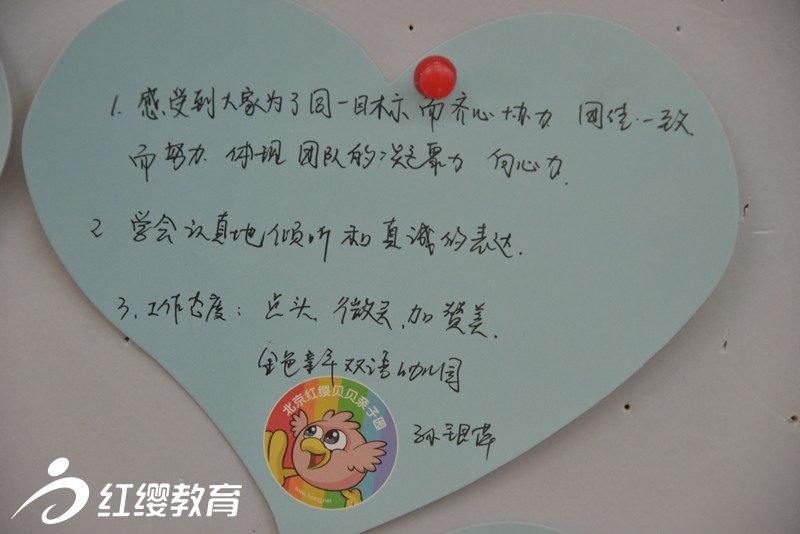 1. 感受到大家为了同一目标而齐心协力 团结一致
而努力 体现团队的凝聚力 向心力.
2 学会认真地倾听和真诚的表达.
3. 工作态度: 点头. 微笑. 加赞美.
金色童年双语幼儿园
北京红缨贝贝亲子园
红缨教育